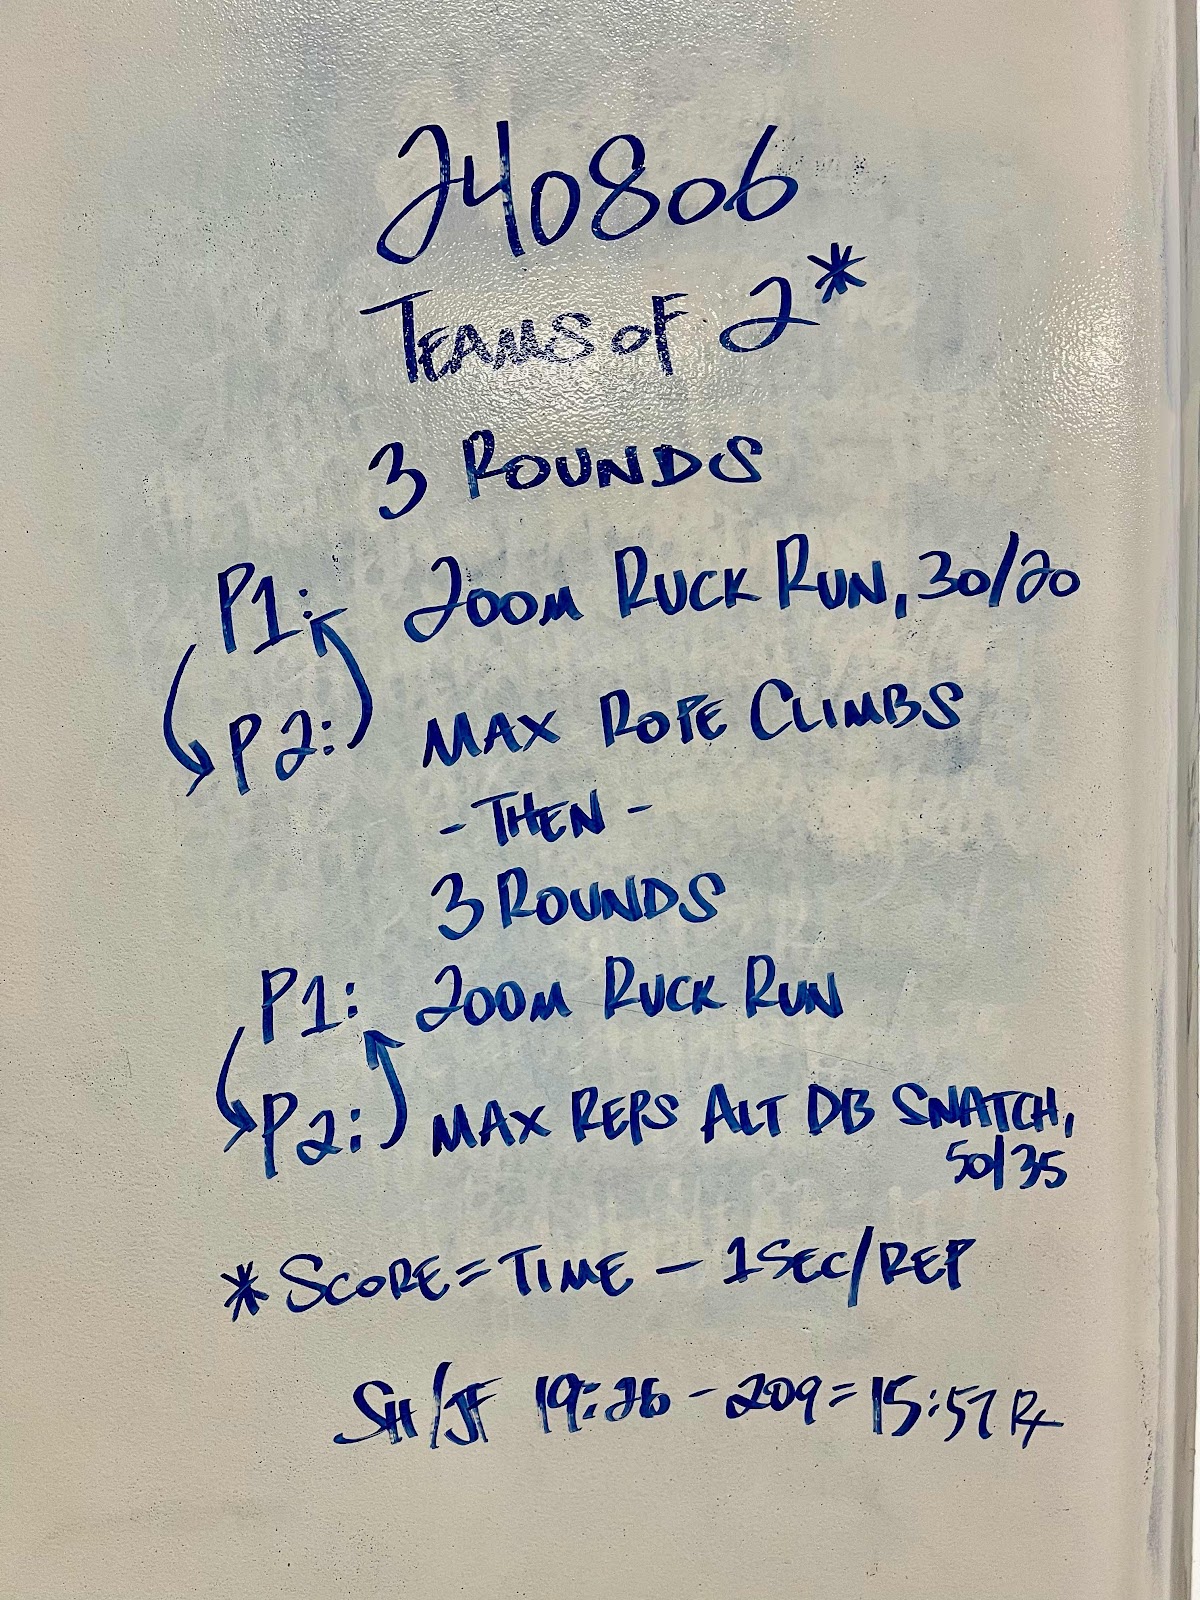 240806
TEAMS OF 2*
3 ROUNDS
P1: 200M RUCK RUN, 30/20
P2: MAX ROPE CLIMBS
- THEN -
3 ROUNDS
P1: 200M RUCK RUN
P2: MAX REPS ALT DB SNATCH,
50/35
*SCORE = TIME - 1SEC/REP
SH/JF 19:26 - 209 = 15:57 Rx